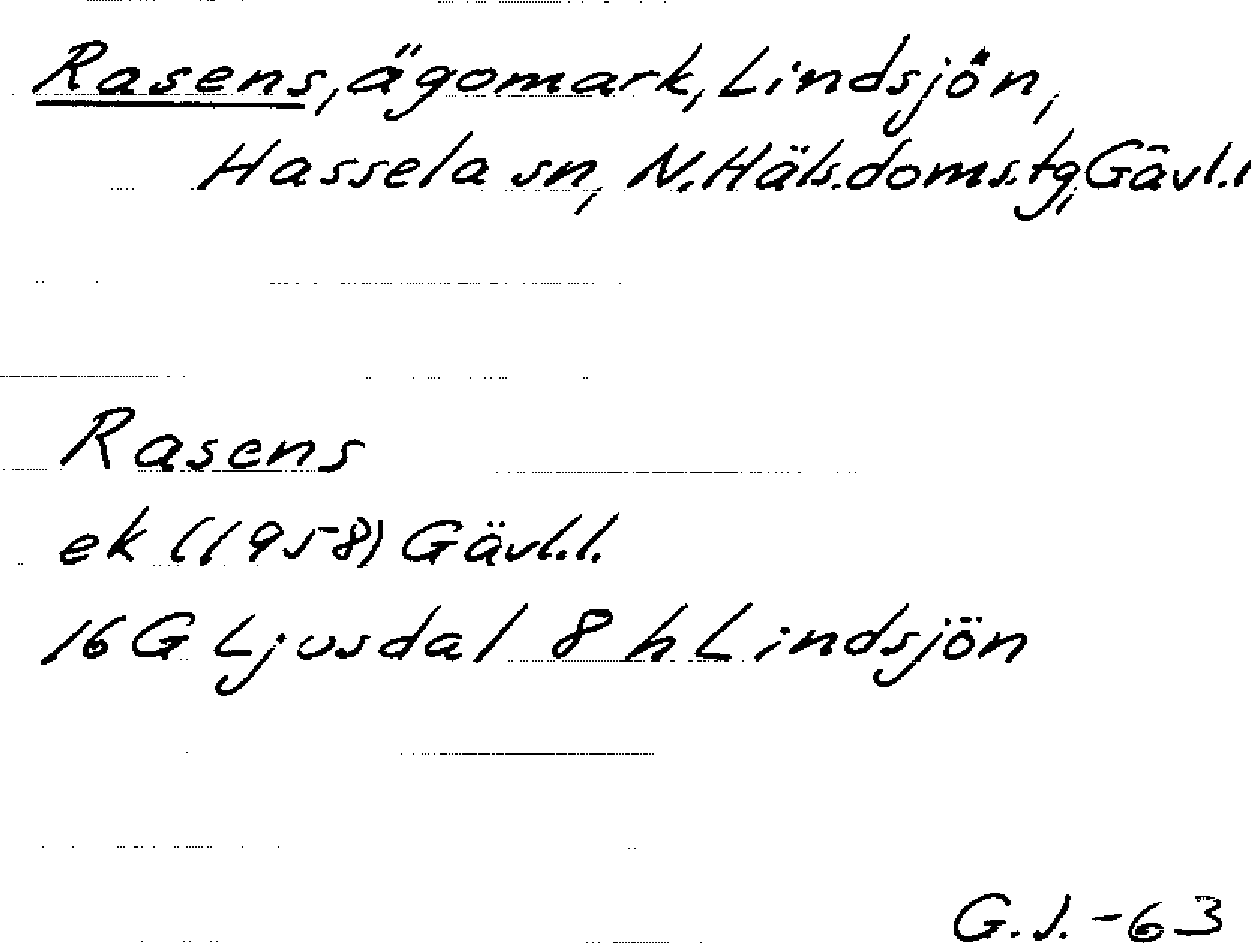 Rasens, ägomark, Lindsjön,
Hassela sn, N. Häls. doms. tg, Gävl.l
Rasens
ek (1958) Gävl.l.
16 G Ljusdal 8 h Lindsjön
G.J. -63